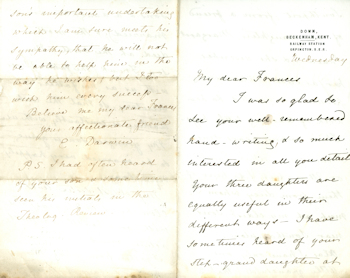 DOWN,
BECKENHAM, KENT.
RAILWAY STATION
ORPINGTON. S.E.R.
Wednesday
My dear Frances
I was so glad to
see your well-remembered
hand-writing, & so much
interested in all you detail
Your three daughters are
equally useful in their
different ways — I have
sometimes heard of your
step-grand daughter at
son's important undertaking
which I am sure meets his
sympathy, that he will not
be able to help him in the
way he wishes, but I too
wish him every success
Believe me my dear Frances
your affectionate friend
Darwin
P.S. I had often heard
of your son
seen his initials in the
Theolog. Review